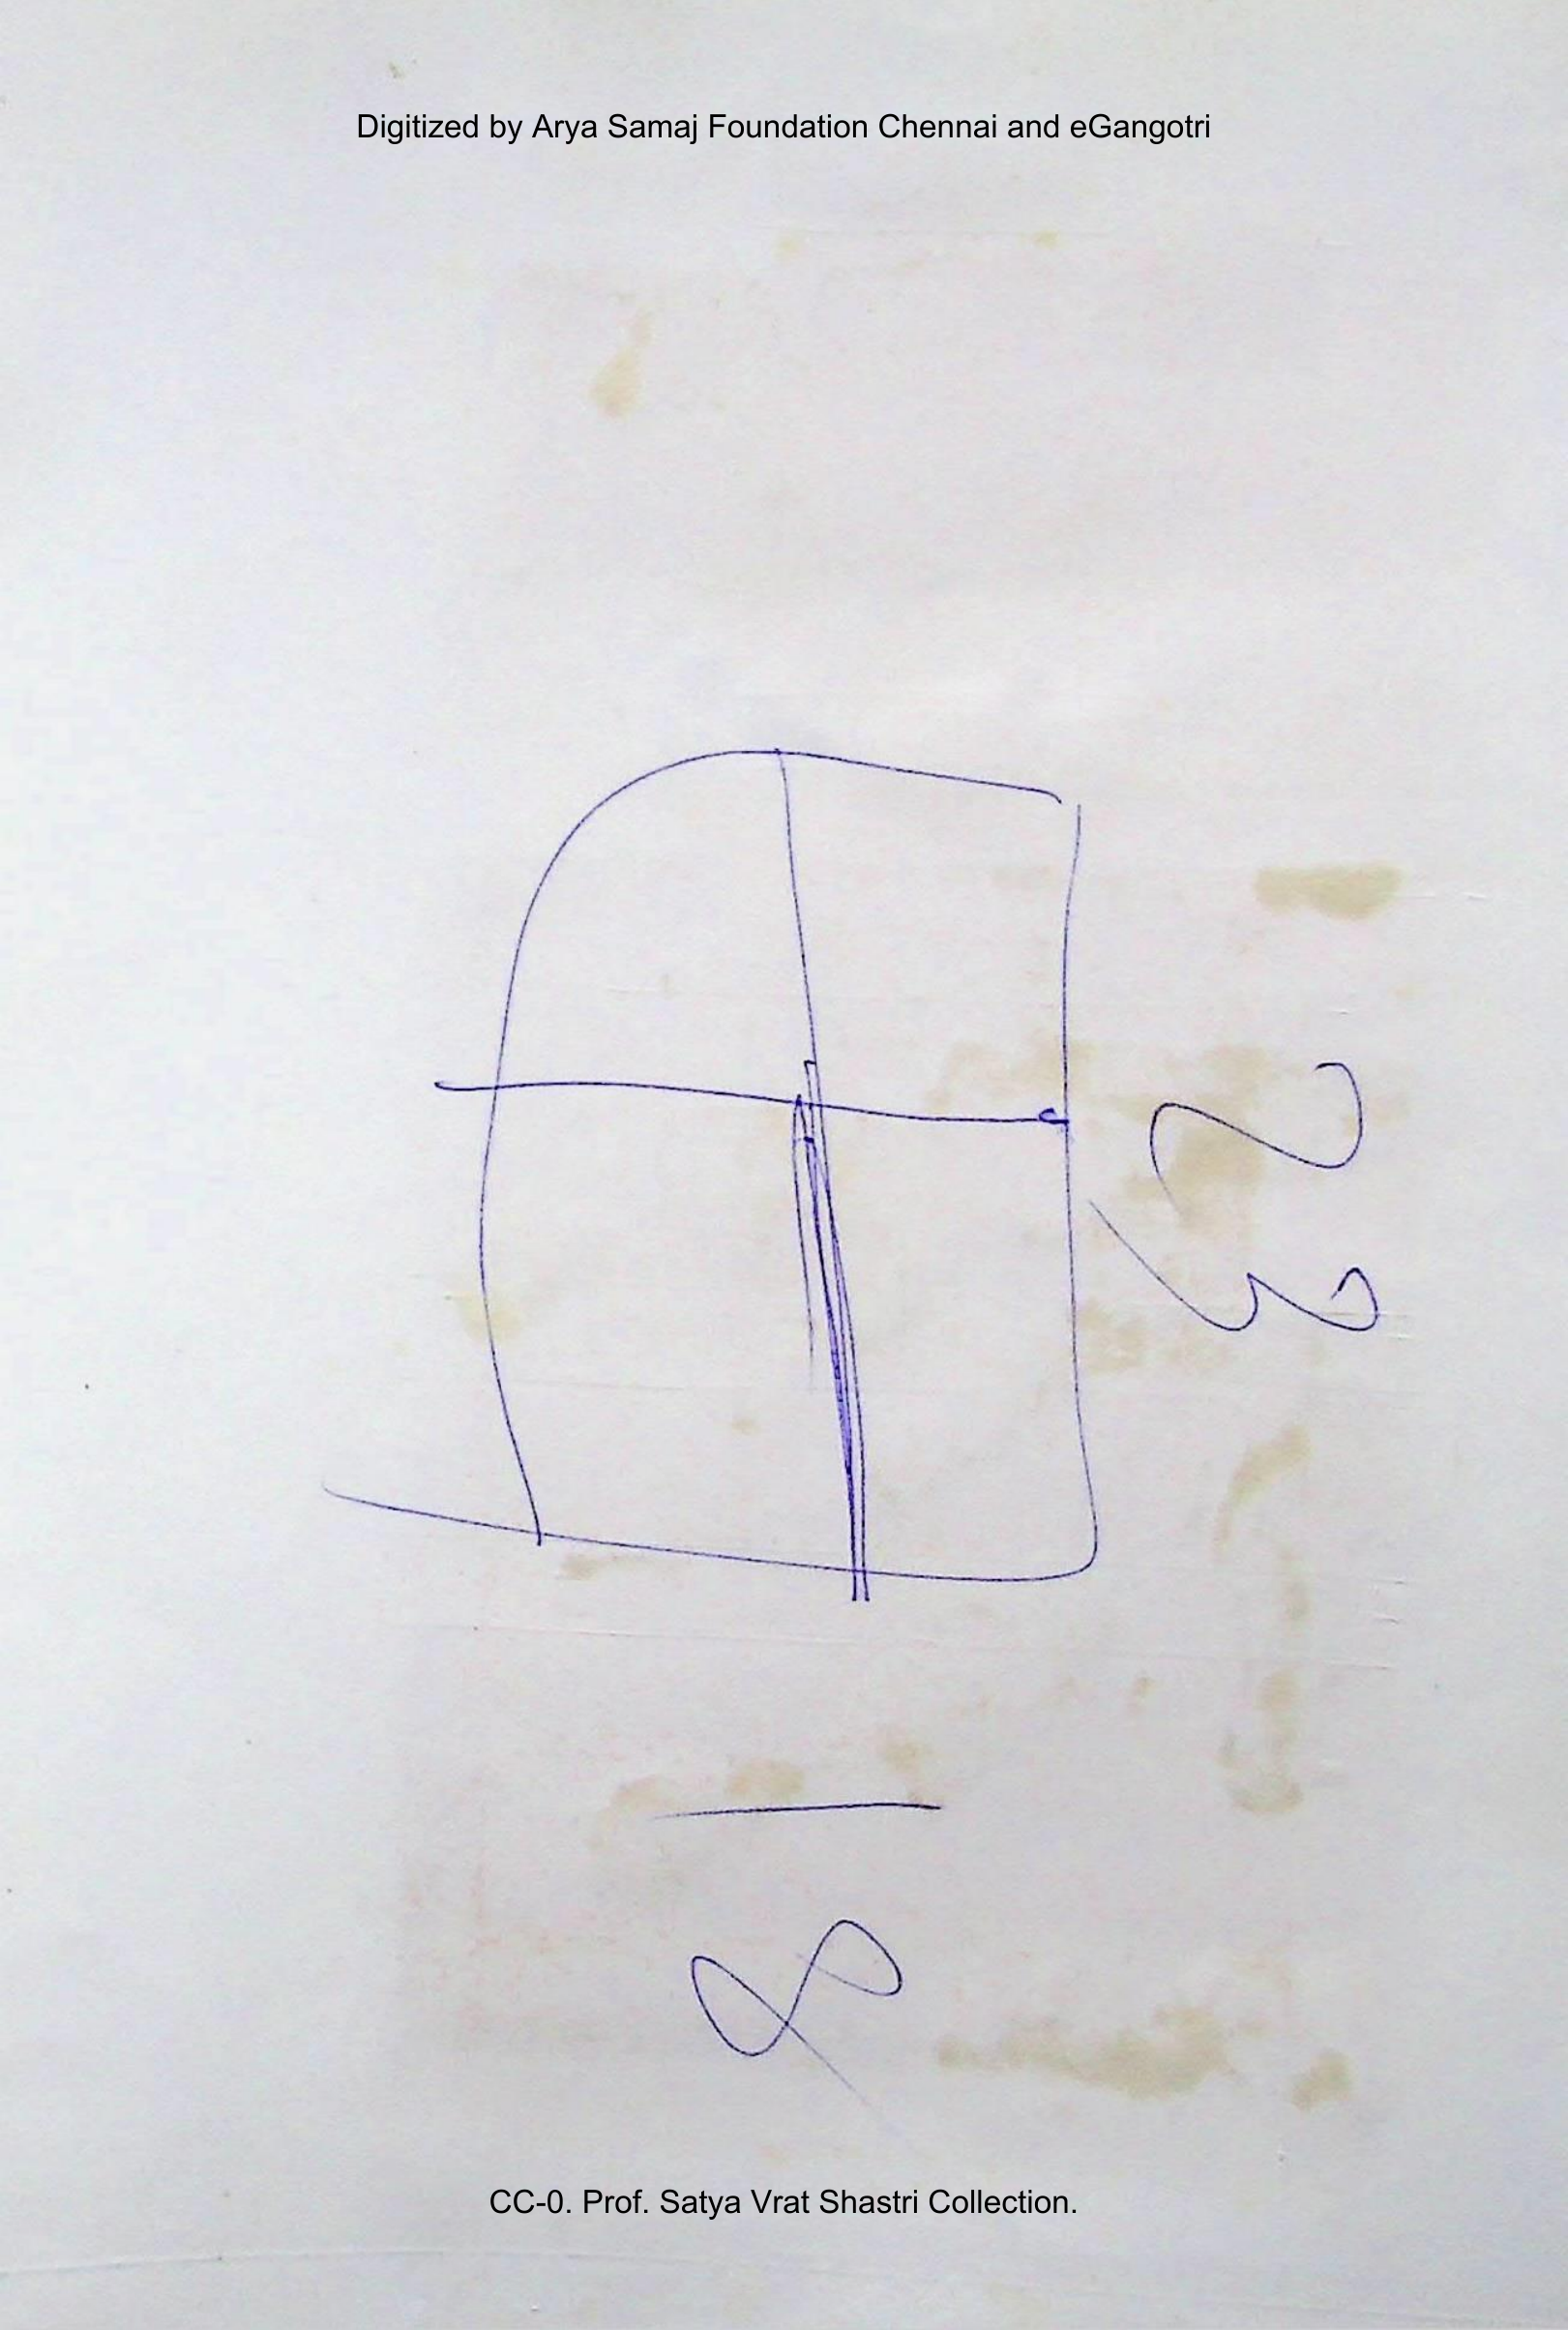 Digitized by Arya Samaj Foundation Chennai and eGangotri
23
18
CC-0. Prof. Satya Vrat Shastri Collection.